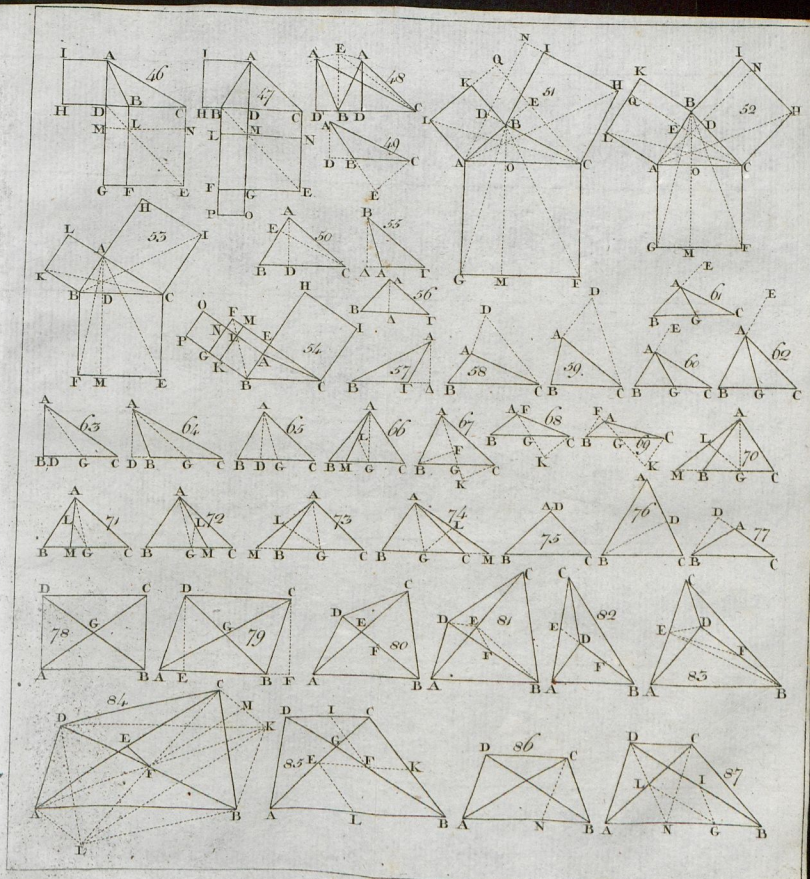 I A 46
H D B C
M L N
G F E
I A 47
H B D C
L M N
F G E
P O
A E A 48
D B D C
A 49
D B C
E
N I
Q 51
K E H
L D B
A O C
G M F
I N
K
Q B 52 H
L E D
A O C
G M F
H
L 53 I
A
K B D C
F M E
A 50
E
B D C
B 55
A A Γ
A 56
B A Γ
H
O F M I
P N L E 54
G K A
B C
A
57
B Γ A
D
A
58
B C
D
A
59
B C
E
A 61
B G C
E
A 60
B G C
E
A 62
B G C
A 63
B D G C
A 64
D B G C
A 65
B D G C
A 66
L
B M G C
A 67
F
B G C
K
A F 68
B G C
K
F A
B G 69 C
K
A
L 70
M B G C
A
L 71
B M G C
A 72
L
B G M C
A
L 73
M B G C
A 74
L
B G C M
A D
75
B C
A
76 D
B C
D A 77
B C
D C
G
78
A B
D C
G
79
A E B F
C
D E
F 80
A B
C
D E 81
F
A B
C
E D 82
F
A B
C
E D
F
A 83 B
84 C
D M
E K
F
A B
L
D I C
G
85 E F K
A L B
D 86 C
A N B
D C
L I 87
A N G B